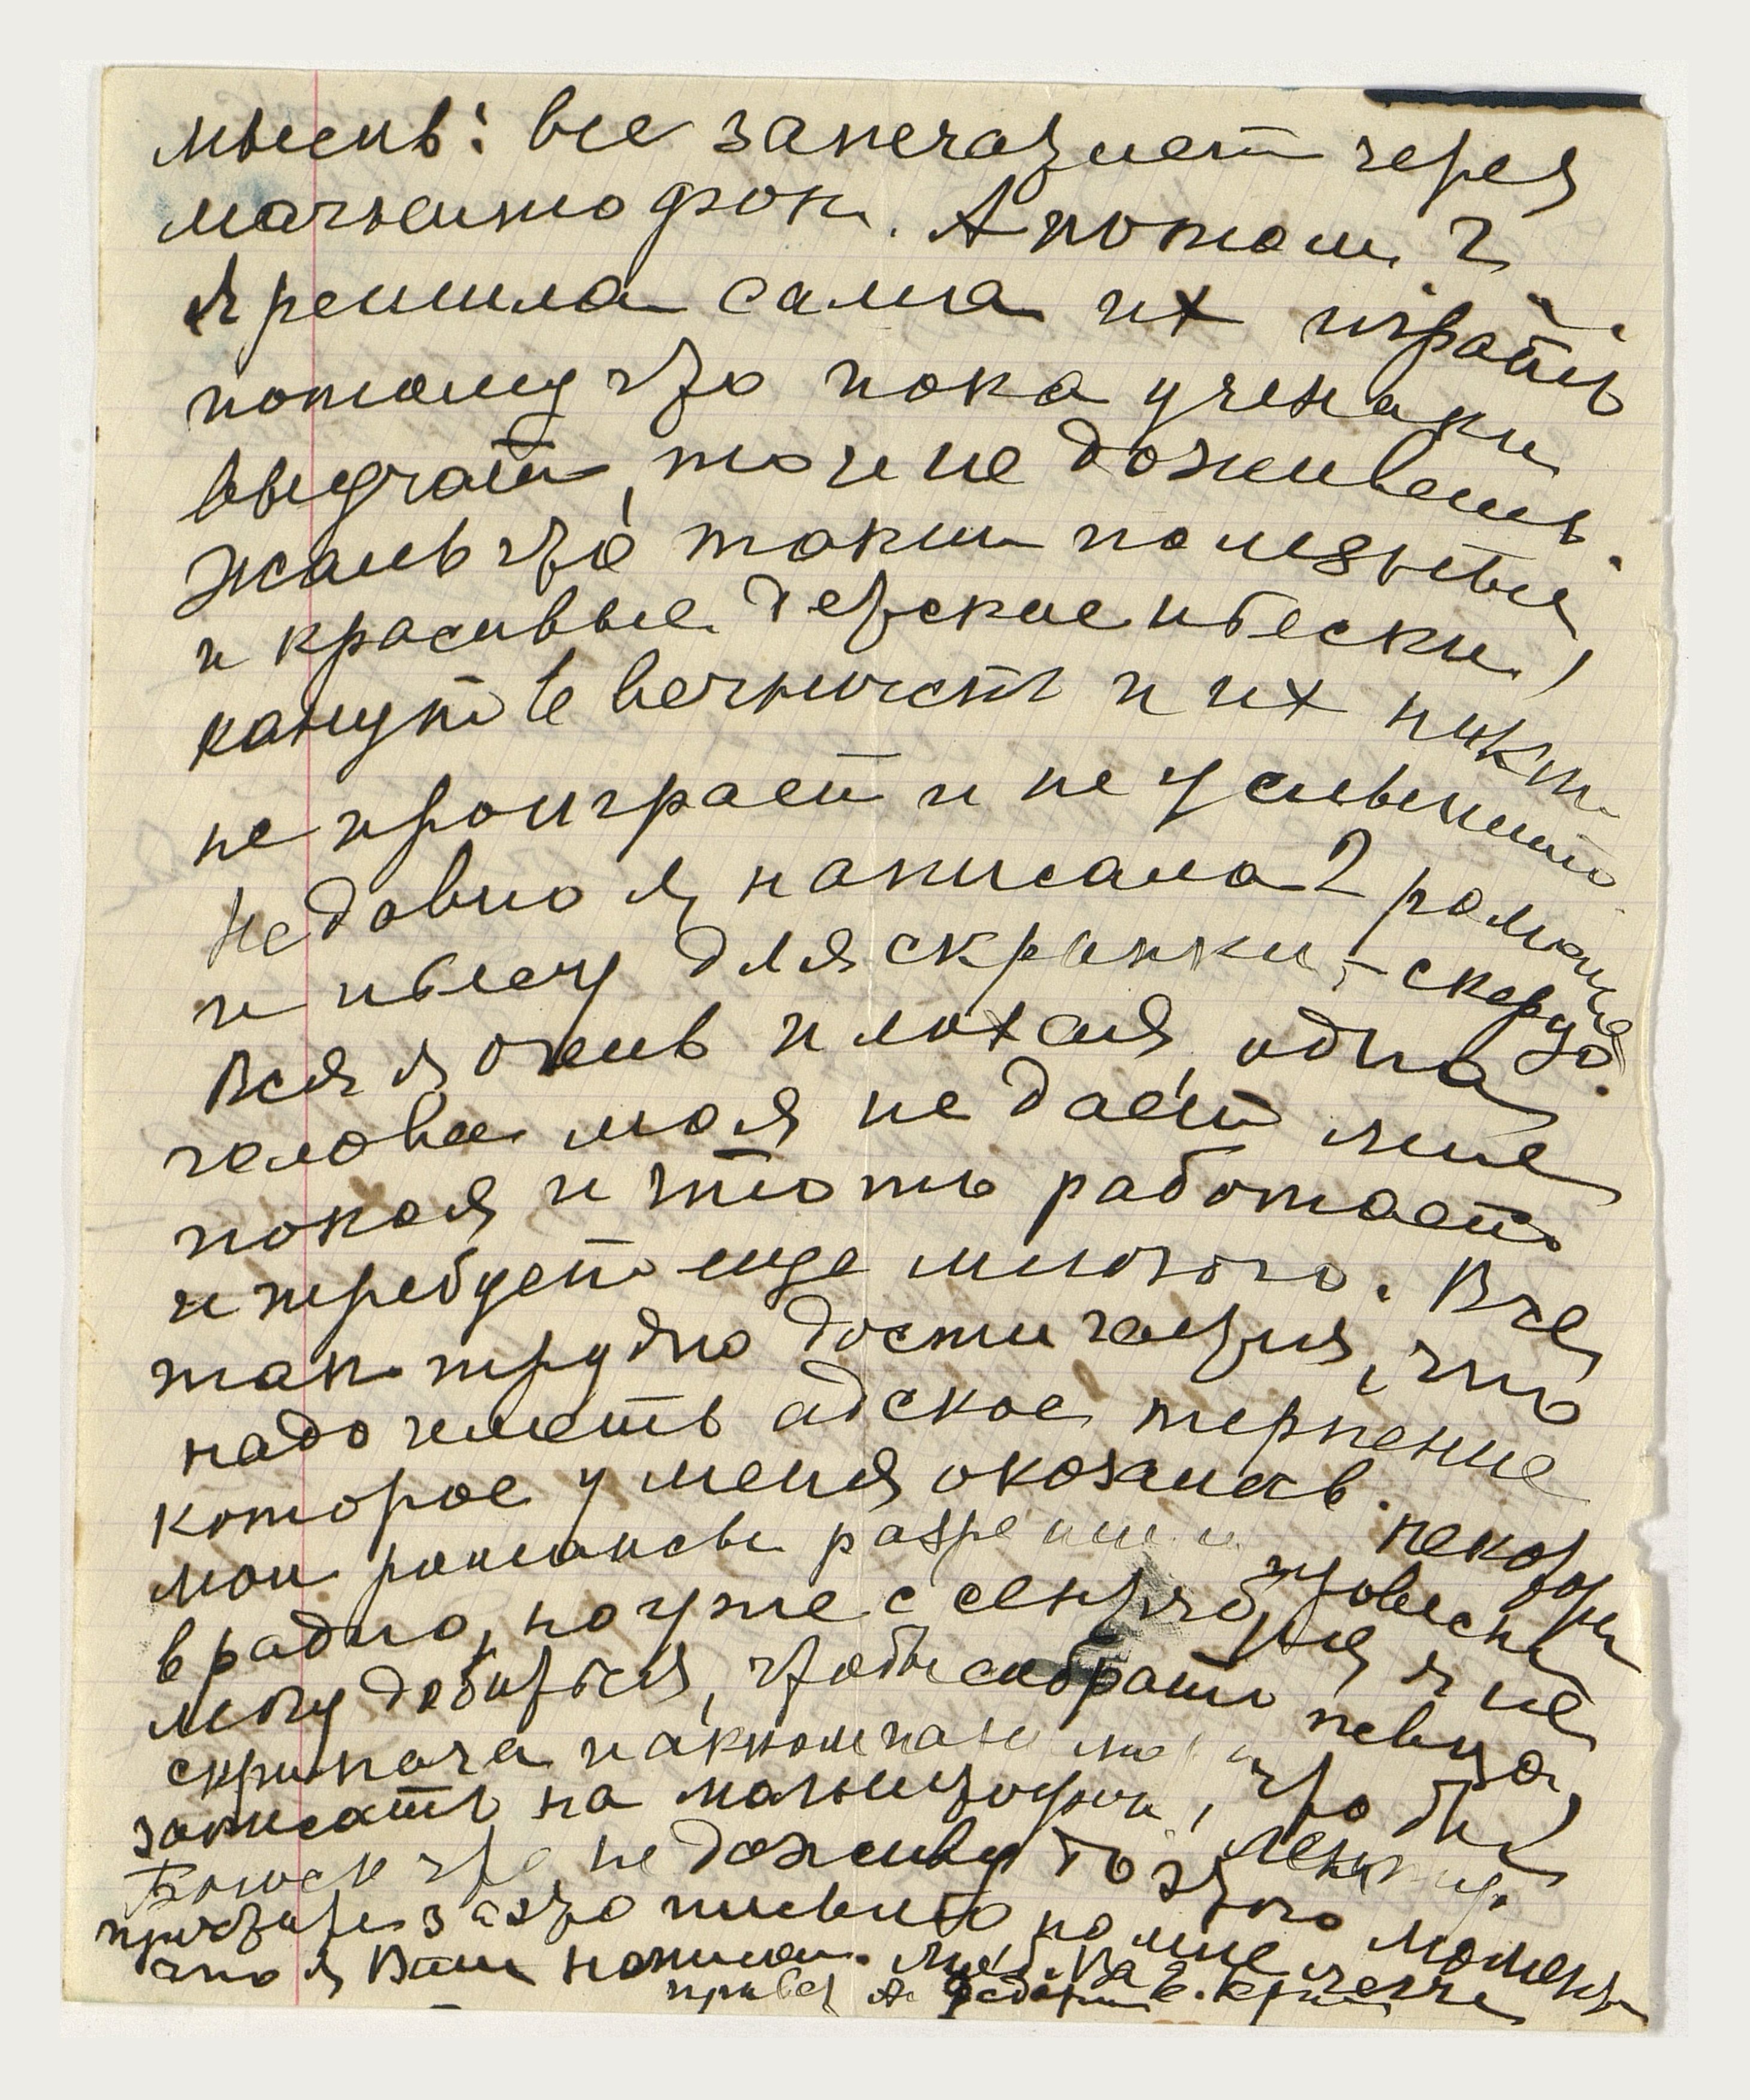 мысль: все запечатлеет через
магнитофон. А потом
я решила сама их играть
потому что пока ученики
выучат, то и не доживешь.
Жаль что такие полезные
и красивые детские пьески,
канут в вечность и их никто
не проиграет и не услышит
Недавно я написала 2 романса
и пьесу для скрипки, - скерцо.
Вся я очень плохая, одна
голова моя не даёт мне
покоя и что то работает
и требует еще многого. Все
так трудно достигается, что
надо иметь адское терпение
которое у меня оказалось. некоторые
мои романсы разрешили провести
в радио, но уже с сентября я не
могу добиться, чтобы собрать певца,
скрипача и аккомпаниатора
записать на магнитофон, чтобы
Боюсь что не доживу до этого момента
простите за это письмо, но мне легче
что я Вам написала. Люб. Ва Е.
привет